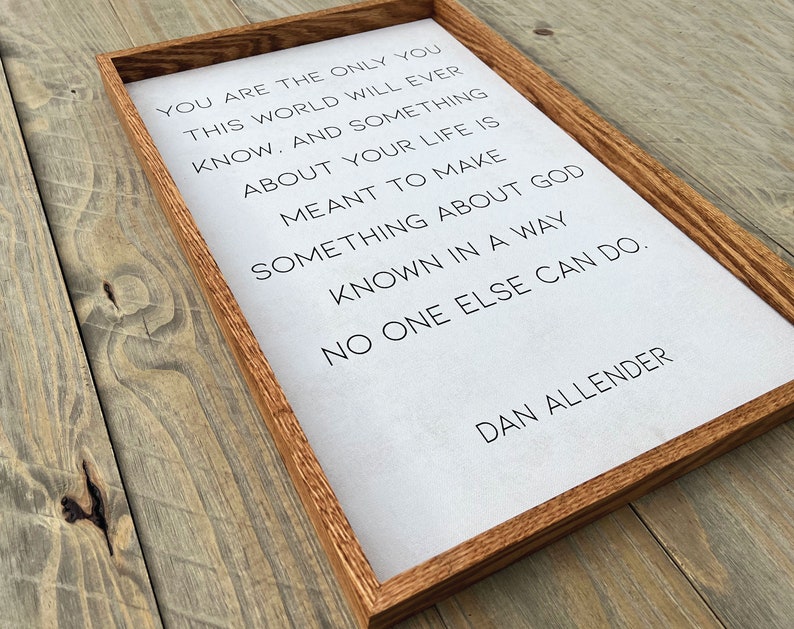 YOU ARE THE ONLY YOU
THIS WORLD WILL EVER
KNOW, AND SOMETHING
ABOUT YOUR LIFE IS
MEANT TO MAKE
SOMETHING ABOUT GOD
KNOWN IN A WAY
NO ONE ELSE CAN DO.
DAN ALLENDER